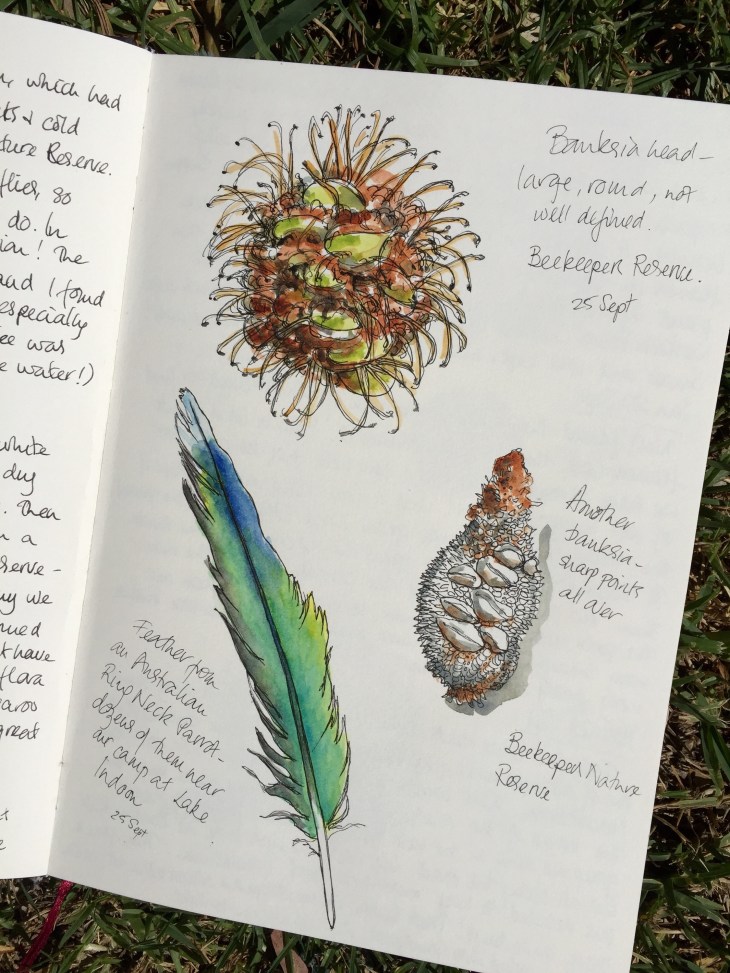 which had
& cold
ture Reserve.
flies, so
do. In
ion! The
and I found
especially
ee was
e water!)
white
dry
. Then
n a
serve -
ny we
nued
t have
flora
garoo
great
Banksia head -
large, round, not
well defined.
Beekeeper Reserve.
25 Sept
Another
banksia -
sharp points
all over
Feather from
an Australian
Ring Neck Parrot -
dozens of them near
our camp at Lake
Indoon
25 Sept
Beekeeper Nature
Reserve